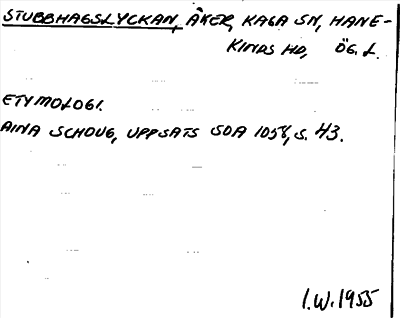 STUBBHAGSLYCKAN, ÅKER, KAGA SN, HANE-
KINDS HD, ÖG. L.
ETYMOLOGI.
AINA SCHOUG, UPPSATS SOA 1058, S. 43.
I.W. 1955